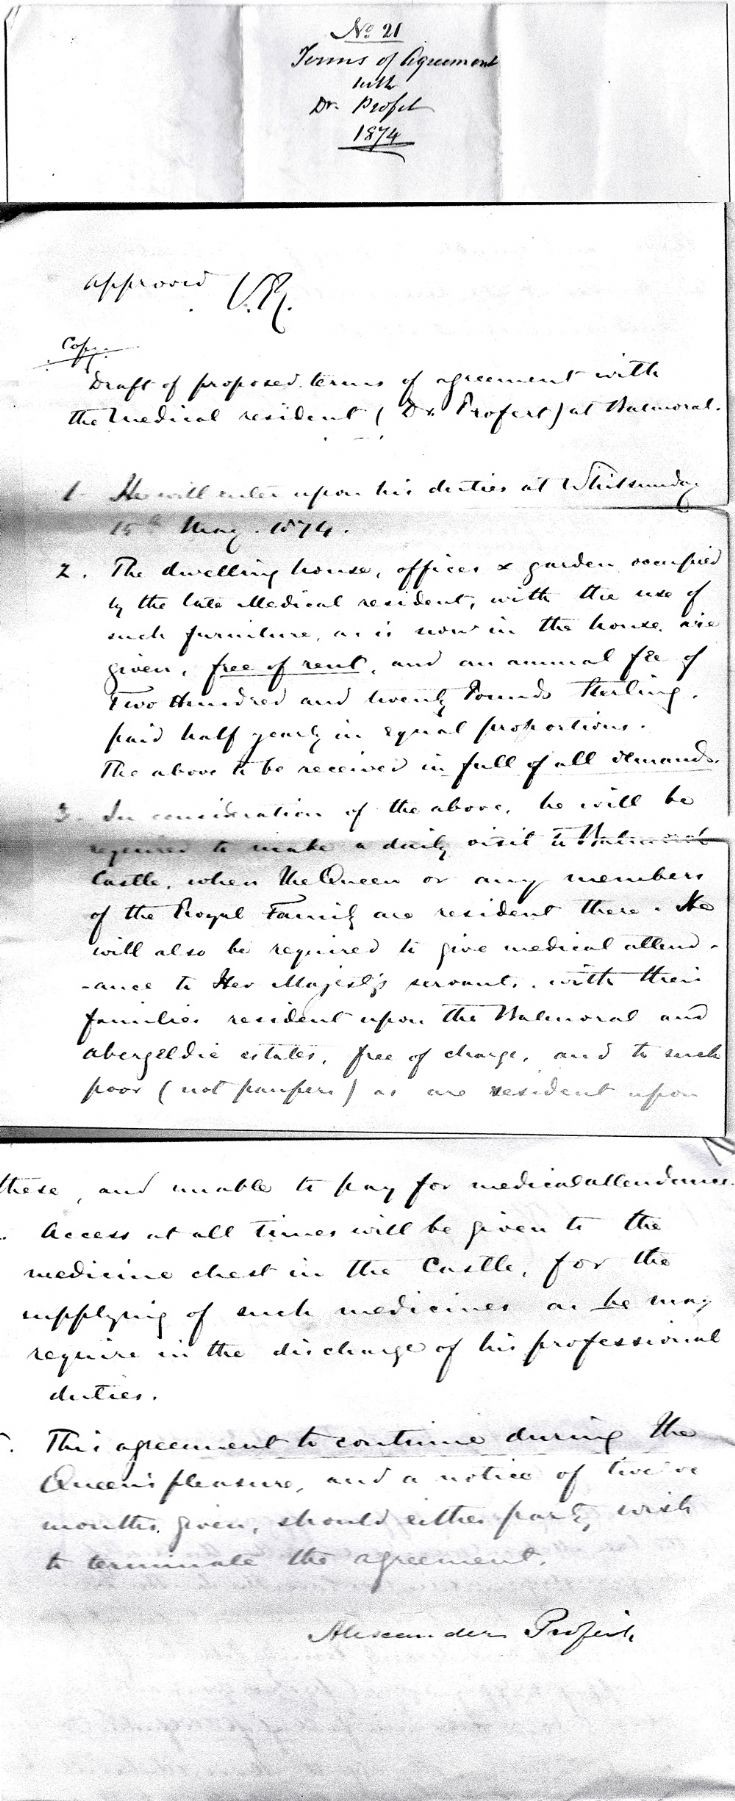 No 21
Terms of Agreement
with
Dr. Profit
1874
approved V.R.
Copy.
Draft of proposed terms of agreement with
the Medical resident (Dr. Profeit) at Balmoral.
1. He will enter upon his duties at Whitsunday
15th May. 1874.
2. The dwelling house, offices & garden occupied
by the late Medical resident, with the use of
such furniture, as is now in the house, are
given, free of rent, and an annual fee of
Two Hundred and twenty Pounds Sterling,
paid half yearly in equal proportions.
The above to be received in full of all demands.
3. In consideration of the above, he will be
required to make a daily visit to Balmoral
Castle, when the Queen or any members
of the Royal Family are resident there. He
will also be required to give medical attend-
-ance to Her Majesty's servants, with their
families resident upon the Balmoral and
abergeldie estates, free of charge, and to such
poor (not paupers) as are resident upon
these, and unable to pay for medical attendance.
. Access at all times will be given to the
medicine chest in the Castle, for the
supplying of such medicines as he may
require in the discharge of his professional
duties.
. This agreement to continue during the
Queen's pleasure, and a notice of twelve
months given, should either party wish
to terminate the agreement.
Alexander Profeit